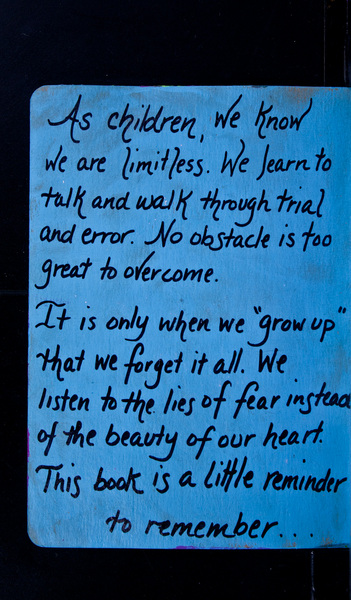 As children, we know
we are limitless. We learn to
talk and walk through trial
and error. No obstacle is too
great to overcome.
It is only when we "grow up"
that we forget it all. We
listen to the lies of fear instead
of the beauty of our heart.
This book is a little reminder
to remember...